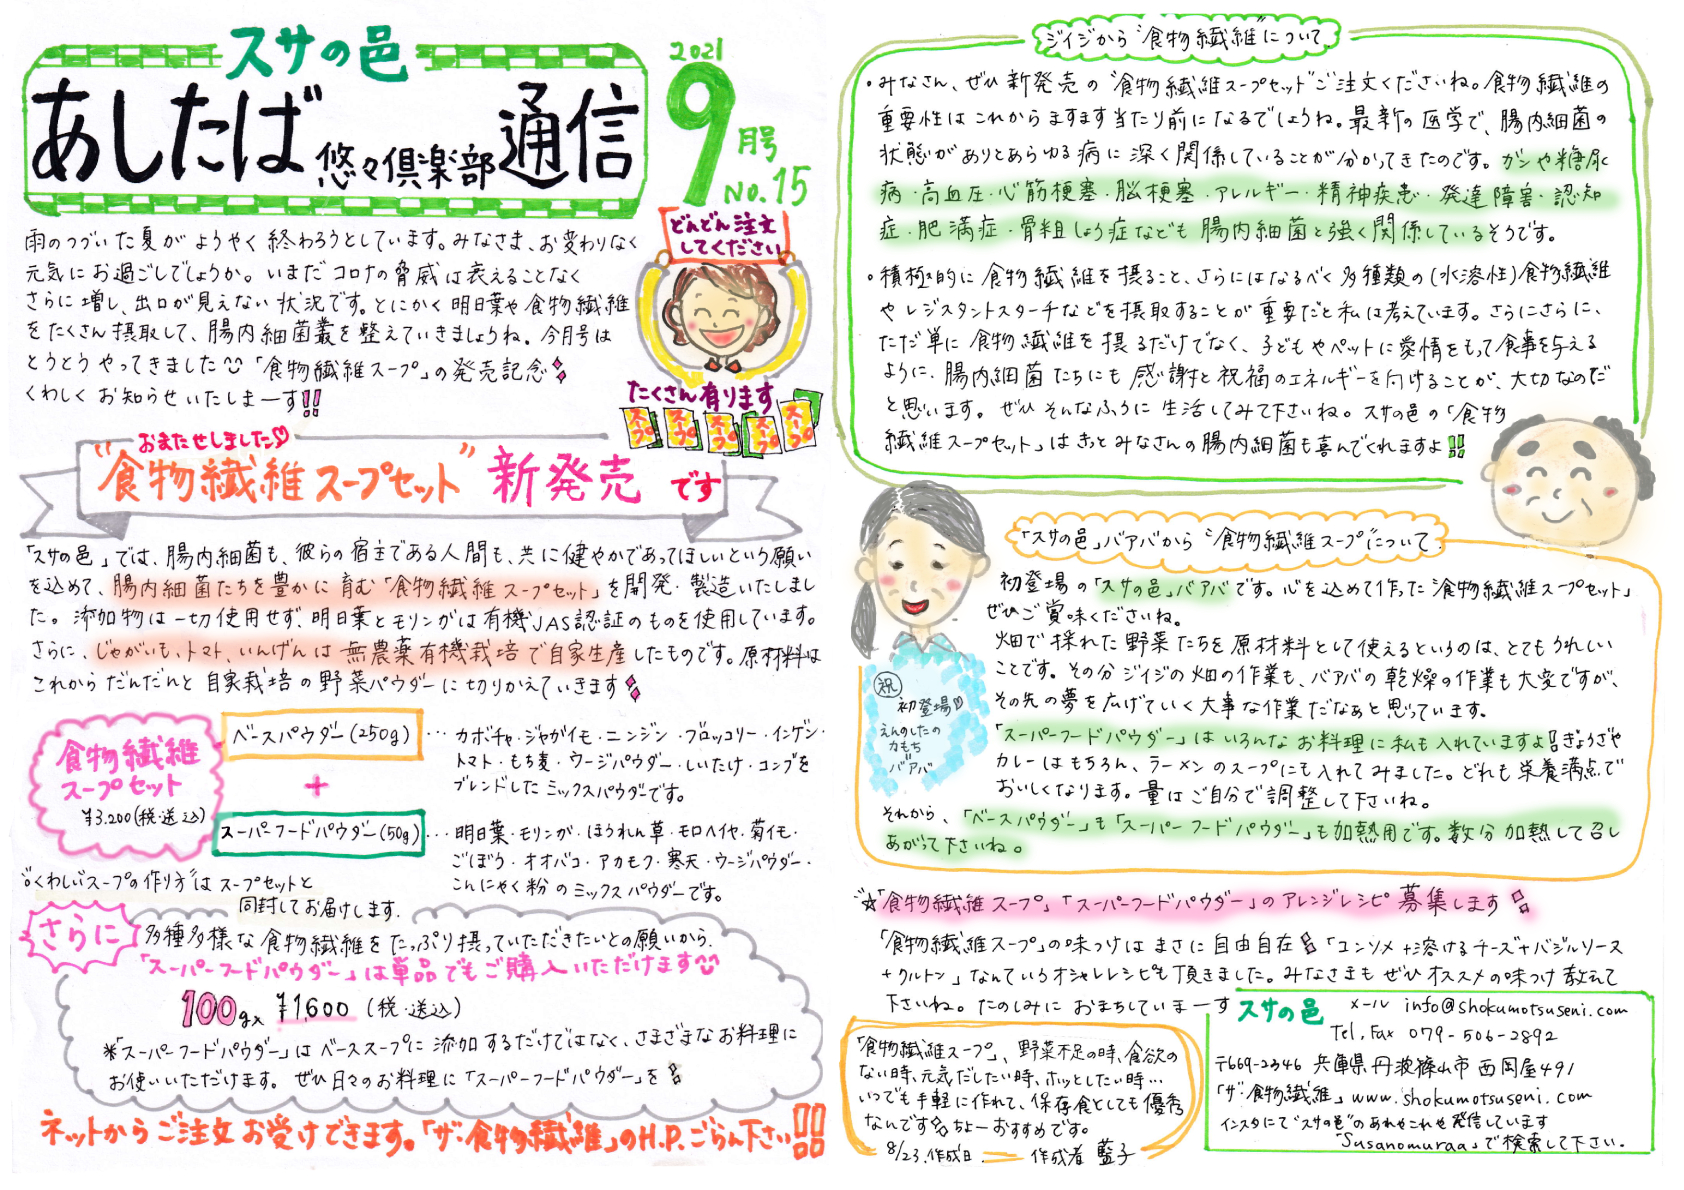 スサの邑
あしたば悠々倶楽部通信
2021
9月号
No.15
どんどん注文
してください
たくさん有ります
スープ
スープ
スープ
スープ
スープ
雨のつづいた夏がようやく終わろうとしています。みなさま、お変わりなく
元気にお過ごしでしょうか。いまだコロナの脅威は衰えることなく
さらに増し、出口が見えない状況です。とにかく明日葉や食物繊維
をたくさん摂取して、腸内細菌叢を整えていきましょうね。今月号は
とうとうやってきました「食物繊維スープ」の発売記念
くわしくお知らせいたしまーす!!
おまたせしました♡
"食物繊維スープセット"新発売です
「スサの邑」では、腸内細菌も、彼らの宿主である人間も、共に健やかであってほしいという願い
を込めて、腸内細菌たちを豊かに育む「食物繊維スープセット」を開発・製造いたしまし
た。添加物は一切使用せず、明日葉とモリンガは有機JAS認証のものを使用しています。
さらに、じゃがいも、トマト、いんげんは無農薬有機栽培で自家生産したものです。原材料は
これからだんだんと自家栽培の野菜パウダーに切りかえていきます
食物繊維
スープセット
¥3,200(税・送込)
ベースパウダー(250g)
… カボチャ・ジャガイモ・ニンジン・ブロッコリー・インゲン・
トマト・もち麦・ウージパウダー・しいたけ・コンブを
ブレンドしたミックスパウダーです。
+
スーパーフードパウダー(50g)
… 明日葉・モリンガ・ほうれん草・モロヘイヤ・菊イモ・
ごぼう・オオバコ・アカモク・寒天・ウージパウダー・
こんにゃく粉のミックスパウダーです。
"くわしいスープの作り方"はスープセットと
同封してお届けします。
さらに
多種多様な食物繊維をたっぷり摂っていただきたいとの願いから、
「スーパーフードパウダー」は単品でもご購入いただけます
100g入 ¥1,600 (税・送込)
*「スーパーフードパウダー」はベーススープに添加するだけではなく、さまざまなお料理に
お使いいただけます。ぜひ日々のお料理に「スーパーフードパウダー」を!
ネットからご注文お受けできます。「ザ・食物繊維」のH.P.ごらん下さい!!
ジイジから"食物繊維"について
・みなさん、ぜひ新発売の"食物繊維スープセット"ご注文くださいね。食物繊維の
重要性はこれからますます当たり前になるでしょうね。最新の医学で、腸内細菌の
状態がありとあらゆる病に深く関係していることが分かってきたのです。ガンや糖尿
病・高血圧・心筋梗塞・脳梗塞・アレルギー・精神疾患・発達障害・認知
症・肥満症・骨粗しょう症なども腸内細菌と強く関係しているそうです。
・積極的に食物繊維を摂ること、さらにはなるべく多種類の(水溶性)食物繊維
やレジスタントスターチなどを摂取することが重要だと私は考えています。さらにさらに、
ただ単に食物繊維を摂るだけでなく、子どもやペットに愛情をもって食事を与える
ように、腸内細菌たちにも感謝と祝福のエネルギーを向けることが、大切なのだ
と思います。ぜひそんなふうに生活してみて下さいね。スサの邑の「食物
繊維スープセット」はきっとみなさんの腸内細菌も喜んでくれますよ!!
「スサの邑」バアバから"食物繊維スープ"について
初登場の「スサの邑」バアバです。心を込めて作った"食物繊維スープセット」
ぜひご賞味くださいね。
畑で採れた野菜たちを原材料として使えるというのは、とてもうれしい
ことです。その分ジイジの畑の作業も、バアバの乾燥の作業も大変ですが、
その先の夢を広げていく大事な作業だなぁと思っています。
「スーパーフードパウダー」はいろんなお料理に私も入れていますよ!ぎょうざや
カレーはもちろん、ラーメンのスープにも入れてみました。どれも栄養満点で
おいしくなります。量はご自分で調整して下さいね。
それから、「ベースパウダー」も「スーパーフードパウダー」も加熱用です。数分加熱して召し
あがって下さいね。
祝
初登場!!
えんのしたの
力もち
バアバ
☆「食物繊維スープ」「スーパーフードパウダー」のアレンジレシピ募集します!!
「食物繊維スープ」の味つけはまさに自由自在!「コンソメ+溶けるチーズ+バジルソース
+クルトン」なんていうオシャレレシピも頂きました。みなさまもぜひオススメの味つけ教えて
下さいね。たのしみにおまちしていまーす
「食物繊維スープ」、野菜不足の時、食欲の
ない時、元気だしたい時、ホッとしたい時…
いつでも手軽に作れて、保存食としても優秀
なんです。ちょーおすすめです。
8/23.作成日 作成者 藍子
スサの邑 メール info@shokumotsuseni.com
Tel,Fax 079-506-2892
〒669-2346 兵庫県丹波篠山市西岡屋491
「ザ・食物繊維」www.shokumotsuseni.com
インスタにて"スサの邑"のあれこれ発信しています
「Susanomuraa」で検索して下さい.